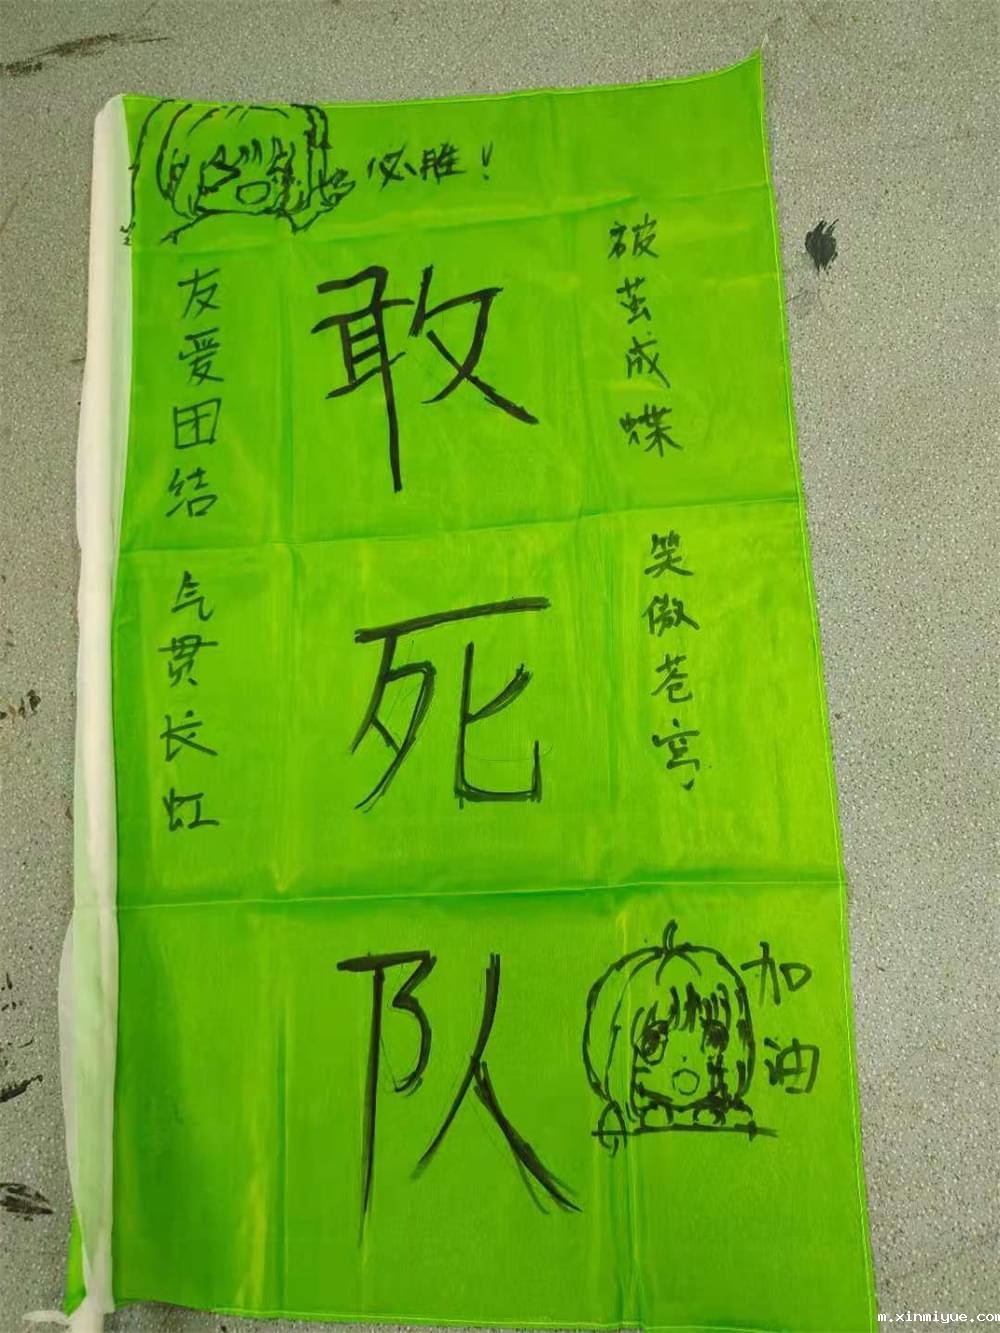 必胜！
友爱团结
气贯长虹
敢死队
被茧成蝶
笑傲苍穹
加油
m.xinmiyue.com